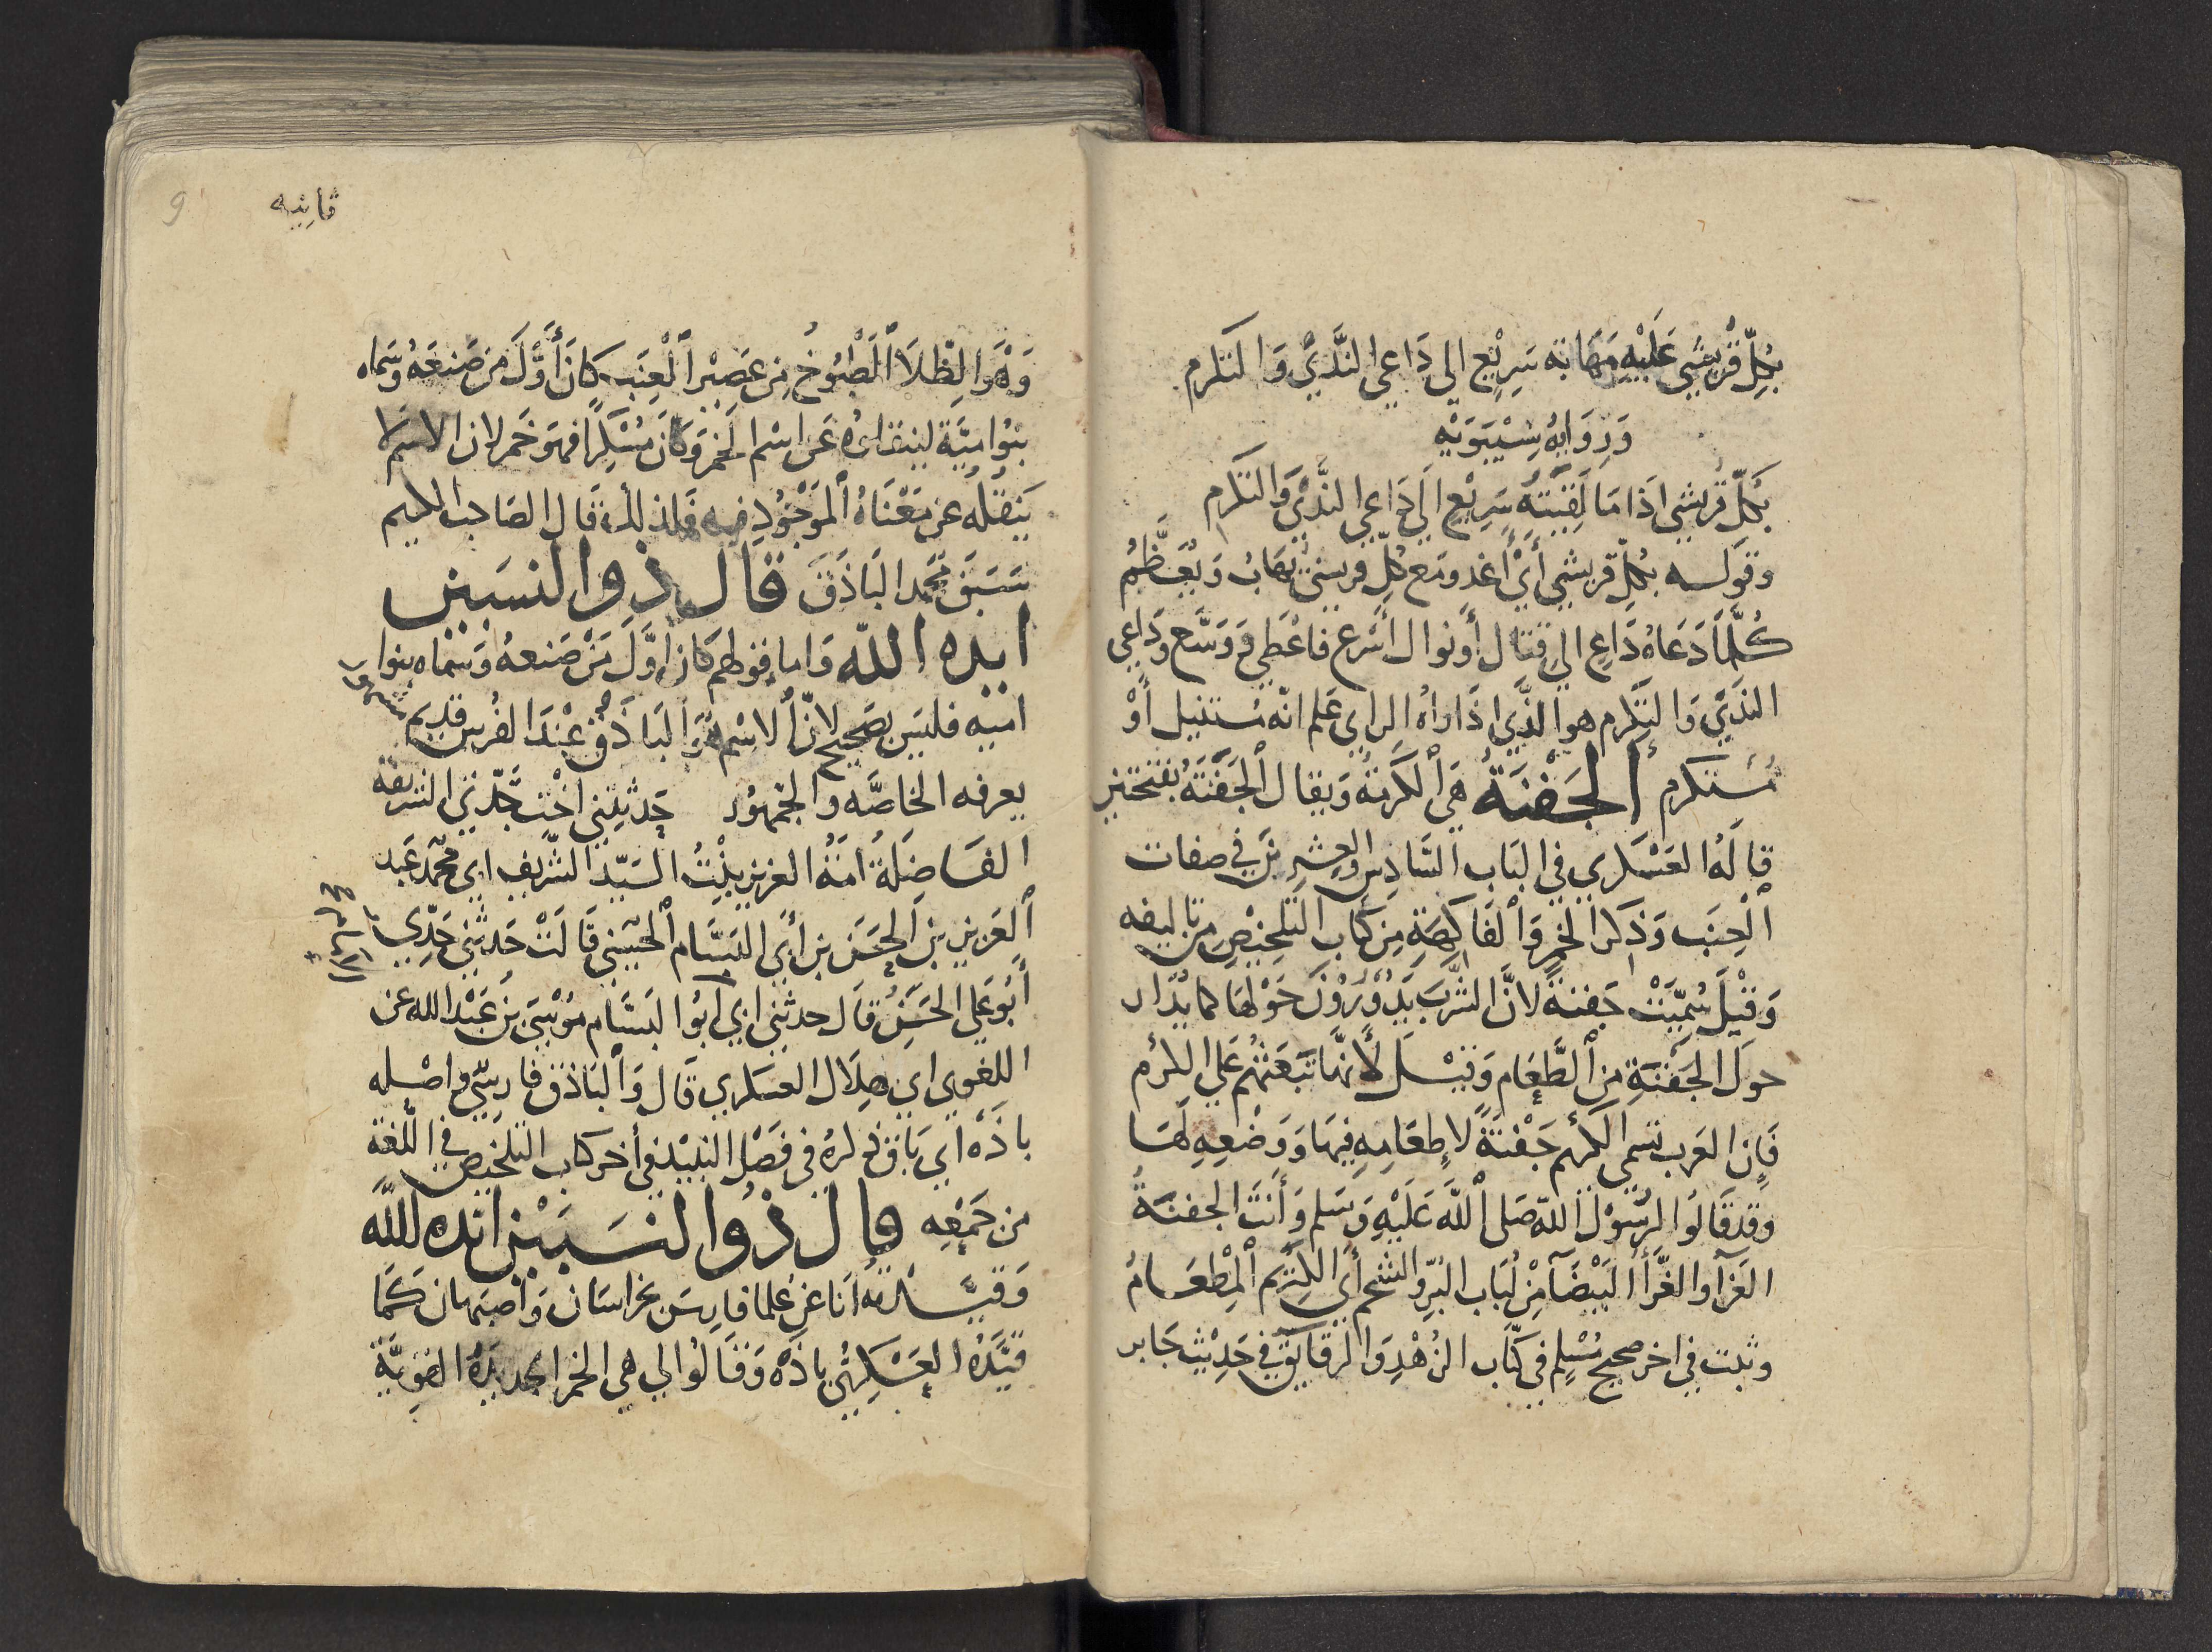 بكلّ قُريشيّ عَلَيْهِ مَهَابة سَرِيْع الي دَاعي النَّدَيٌ وَالتكرم
وَرِوَايَةُ سِيْبَوَيْهِ
بَكلّ قُريشي اذا مَا لَقِيْتَهُ سَرِيْعٍ اِلَي دَاعِي النَّدَيْ وَالتكرم
وقوله بكلِ قريشي أَيْ أَغدو مَع كلِّ قريشي يهَابُ وَيُعَظَّمُ
كُلَّمَا دَعَاهُ دَاعِ الي قتال أو نوال أَسْرع فاعْطي وَوَسَّع وَدَاعي
النَدَيْ وَالتكرم هو الذَّي اذَا رَاهُ الراي عَلم انّه مُستنيل أَوْ
مُسْتكرم اُلجَفْنَةُ هيَ ٱلكَرْمَةُ وَيقال ٱلجَفَنَةُ بفتحتين
قالَهُ العَسْكري في البَاب السَّادِس والعِشرِين في صفات
ٱلْعِنَب وَذكر الخَمر وَٱلفَاكِهَةِ مِن كتَاب التلخيْص من تاليفه
وَقِيْلَ سُمِّيَتْ جَفنةً لانَّ الشَّرب يَدُوْرُوْنَ حَوْلهَا كما يُدَار
حولَ الجَفْنَةِ مِنَ ٱلطَّعَام وَقِيْلَ لأنهَّا تَبَعَثُهُم عَلي الكرم
فَإِن العَرب تسَمي الكَريم جَفْنَةً لإطعَامِهِ فيهَا وَوَضْعِهِ لَهَا
وَقد قَالوُا لرسُوْل اللّه صَلى ٱللّهُ عَلَيْهِ وَسَلم وَأَنتَ الجفنةُ
الغَرَّآ والغَرَّآ البَيْضَآ مِنْ لبَاب البُرّ والشحم أَي الكَرِيم ٱلمِطْعَامُ
وثبت في اخر صحيح مُسْلم في كتَاب الزُهْدِ وَالرقايق في حَدِيْث جَابر
ثانيه
9
وَهْوَ الطِّلَا ٱلمَطْبُوْخُ مِن عَصِيْر ٱلْعِنَبِ كَانَ أَوَّلَ مَن صَنعَهُ وَسَماه
بنوُا امَيَّة لينقلوُه عَن اسْم الخَمر وَكانَ مُسْكِرًا فهوَ خَمر لان الاسْمَ لا
يَنقلُه عن مَعْنَاهُ ٱلمَوْجُوْدِ فيه فلذلكَ قَال الصَاحب الكريم
سَبَقَ مَحمد البَاذَقَ قَال ذو النسَبين
ايده اللّه وَاما قولهم كَان اوَّلَ مَنْ صَنعهُ وَسمَّاه بنوا
اميه فليسَ بصَحيح لانَّ ٱلاسْم هُوَ ٱلبَاذَق عِنْدَ الفُرس قديم
مشهورا
يعرفه الخاصَّه والجمهُور حَدثتني اخْت جَدّتي الشريفة
الفَاضِلَةُ امَةُ العزيز بنْتُ السَيّد الشَّريف ابي محمَّد عَبد
ٱلعَزيز بن الحَسَن بن أَبي البَسَّام ٱلحسَيني قَالَتْ حَدثني جَدّي
أَبُو عَلي الحَسَنُ قَال حدثني ابي ابُوا البَسَّام مُوْسَيَ بْن عَبْدالله عن
اللغوي ابي هِلَال العسكري قَال وَٱلبَاذق فارسِيّ واصْله
باذَهْ أي بَاق ذكرهُ في فصْل النبيْذ في أخر كتاب التلخيص في اللّغة
من جَمْعِه قال ذُوا لنسَبَيْن ايده الله
وَقيَّدتُهُ انَا عَن عُلمَا فارسَ بخراسَان وَاصْبهان كَمَا
قيَّدَهُ العَسْكريُّ باذَهْ وَقَالوُا لي هي الخمر الجديدَةُ القويَّة